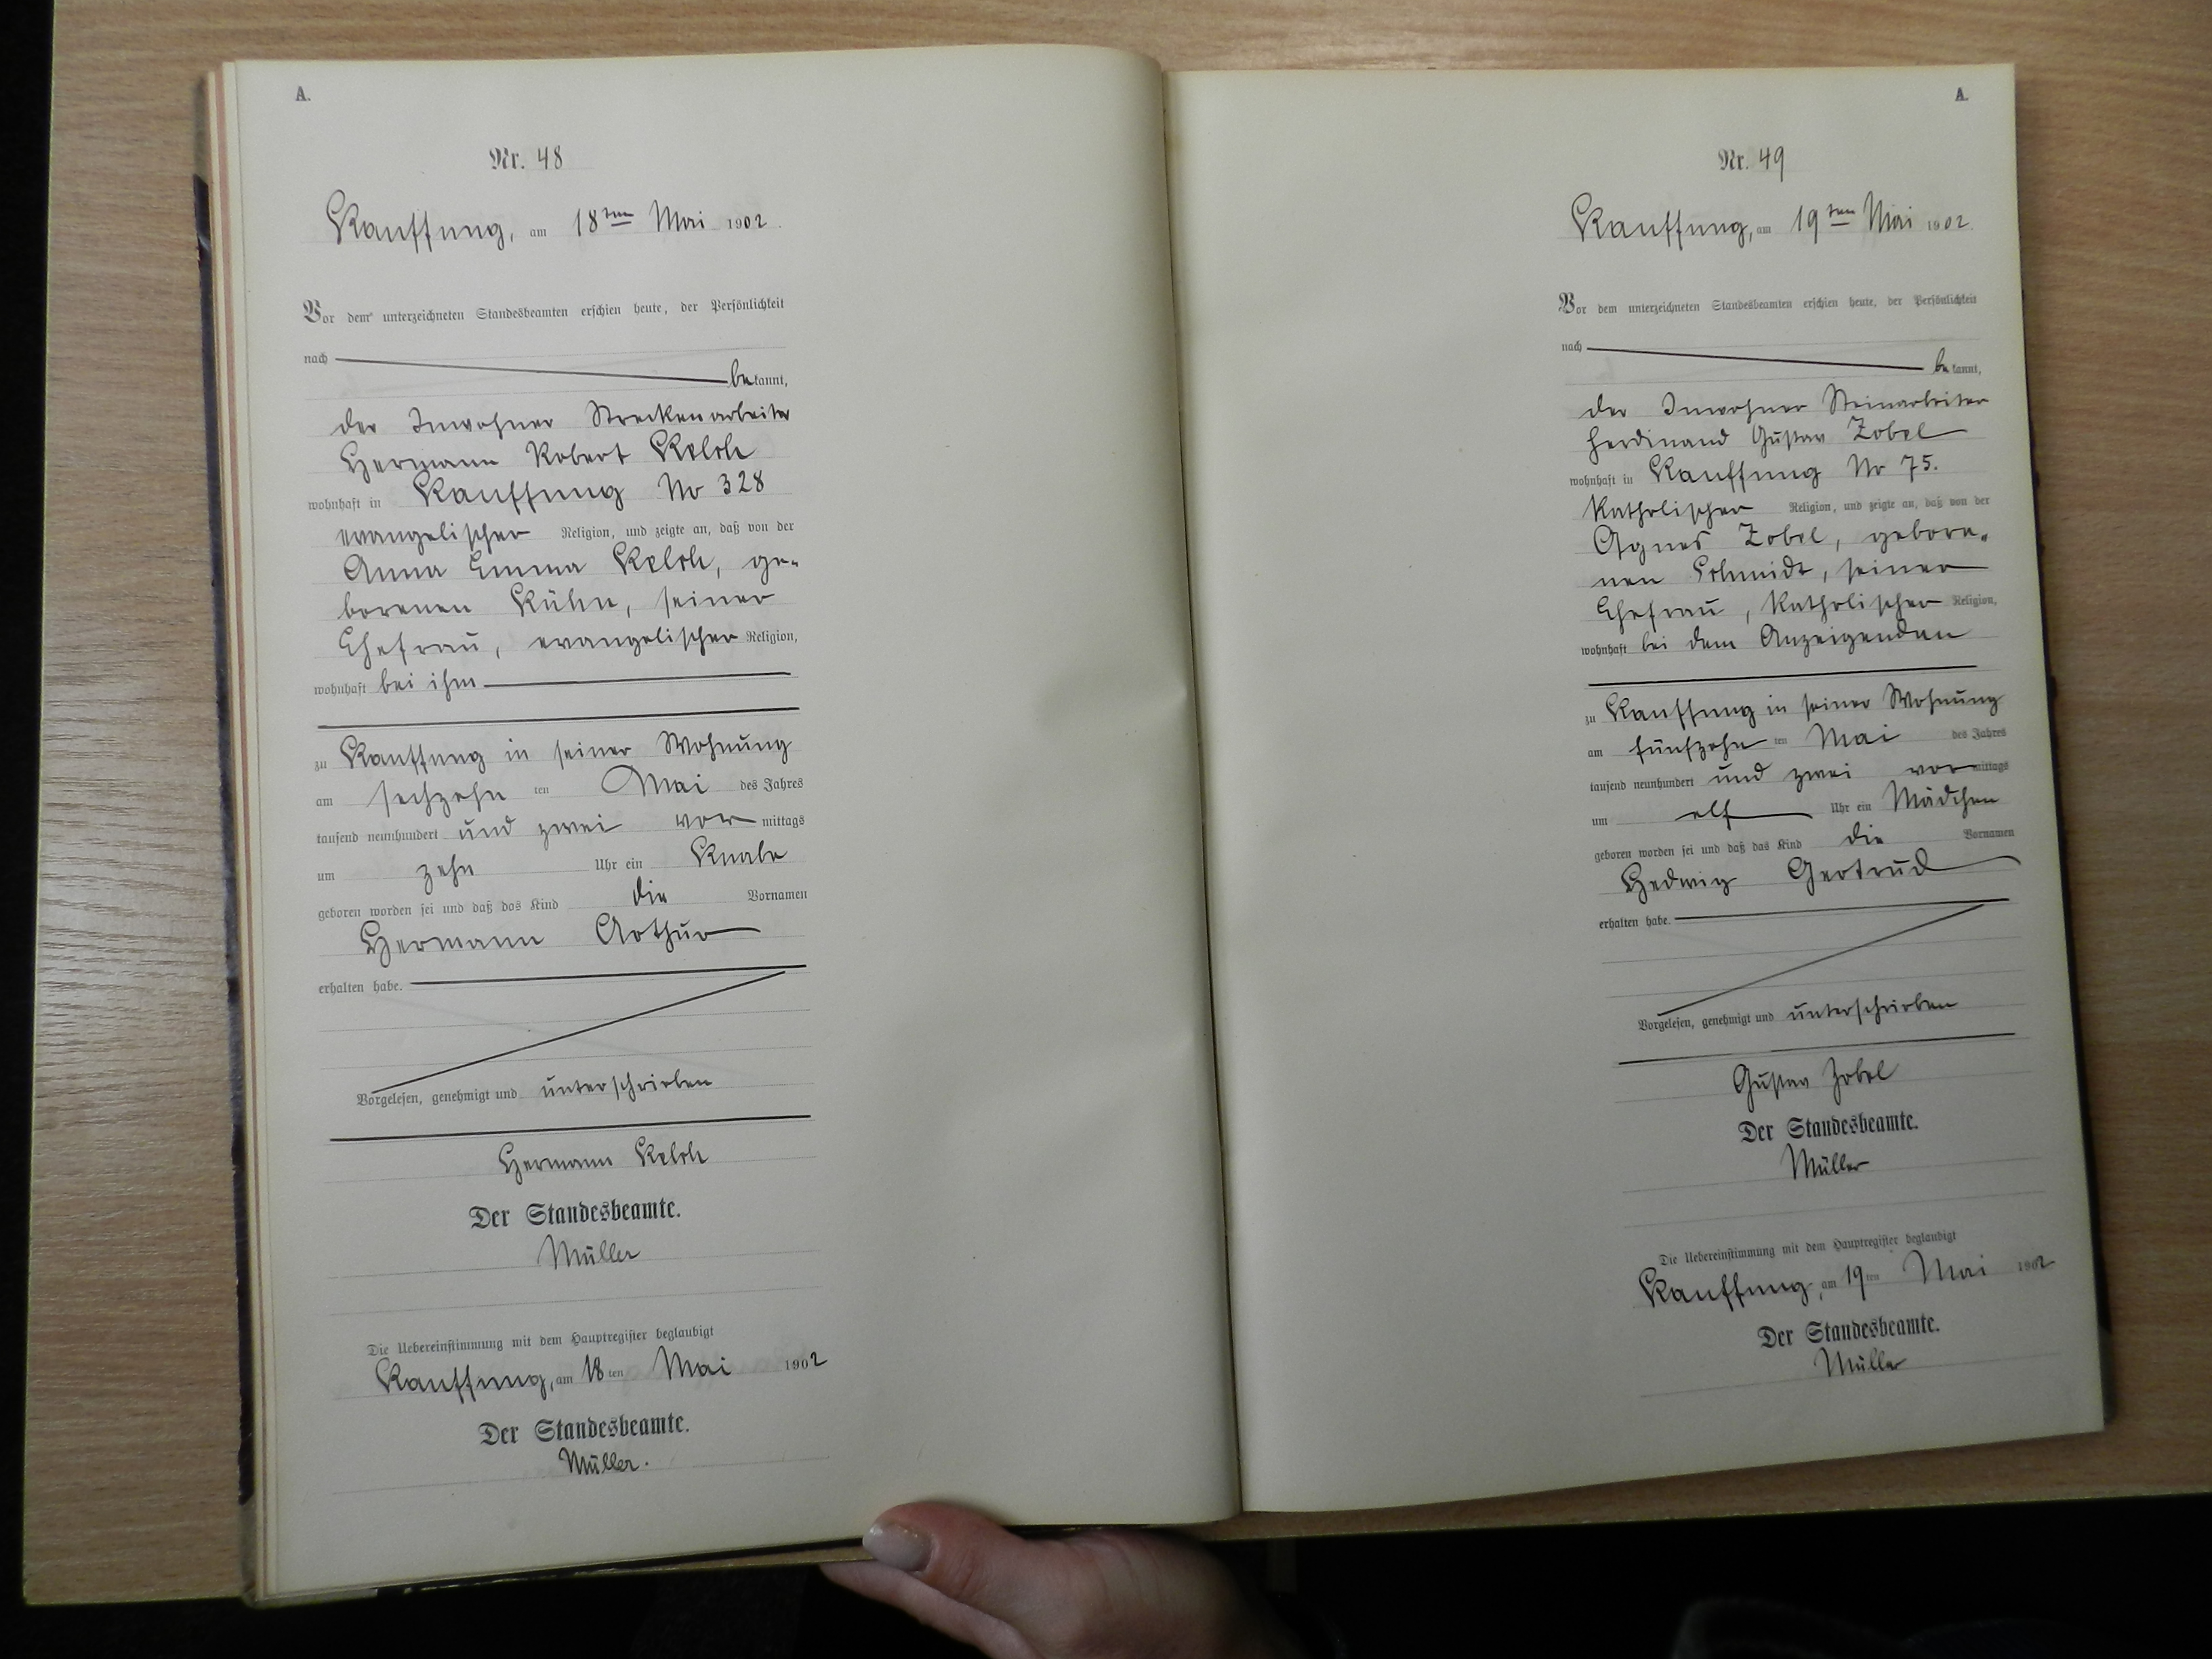 A.
Nr. 48
Kauffung, am 18ten Mai 1902.
Vor dem unterzeichneten Standesbeamten erschien heute, der Persönlichkeit
nach
bekannt,
der Inwohner Streckenarbeiter
Hermann Robert
wohnhaft in Kauffung No 328
evangelischer Religion, und zeigte an, daß von der
Anna Emma ge-
borenen Kühn, seiner
Ehefrau, evangelischer Religion,
wohnhaft bei ihm
zu Kauffung in seiner Wohnung
am sechzehn ten Mai des Jahres
tausend neunhundert und zwei vormittags
um zehn Uhr ein Knabe
geboren worden sei und daß das Kind die Vornamen
Hermann Arthur
erhalten habe.
Vorgelesen, genehmigt und unterschrieben
Hermann
Der Standesbeamte.
Müller
Die Uebereinstimmung mit dem Hauptregister beglaubigt
Kauffung, am 18 ten Mai 1902
Der Standesbeamte.
Müller.
A.
Nr. 49
Kauffung, am 19ten Mai 1902.
Vor dem unterzeichneten Standesbeamten erschien heute, der Persönlichkeit
nach
bekannt,
der Inwohner Steinarbeiter
Ferdinand Gustav Zobel
wohnhaft in Kauffung No 75.
katholischer Religion, und zeigte an, daß von der
Agnes Zobel, gebore-
nen Schmidt, seiner
Ehefrau, katholischer Religion,
wohnhaft bei dem Anzeigenden
zu Kauffung in seiner Wohnung
am fünfzehn ten Mai des Jahres
tausend neunhundert und zwei vormittags
um elf Uhr ein Mädchen
geboren worden sei und daß das Kind die Vornamen
Hedwig Gertrud
erhalten habe.
Vorgelesen, genehmigt und unterschrieben
Gustav Zobel
Der Standesbeamte.
Müller
Die Uebereinstimmung mit dem Hauptregister beglaubigt
Kauffung, am 19 ten Mai 1902
Der Standesbeamte.
Müller